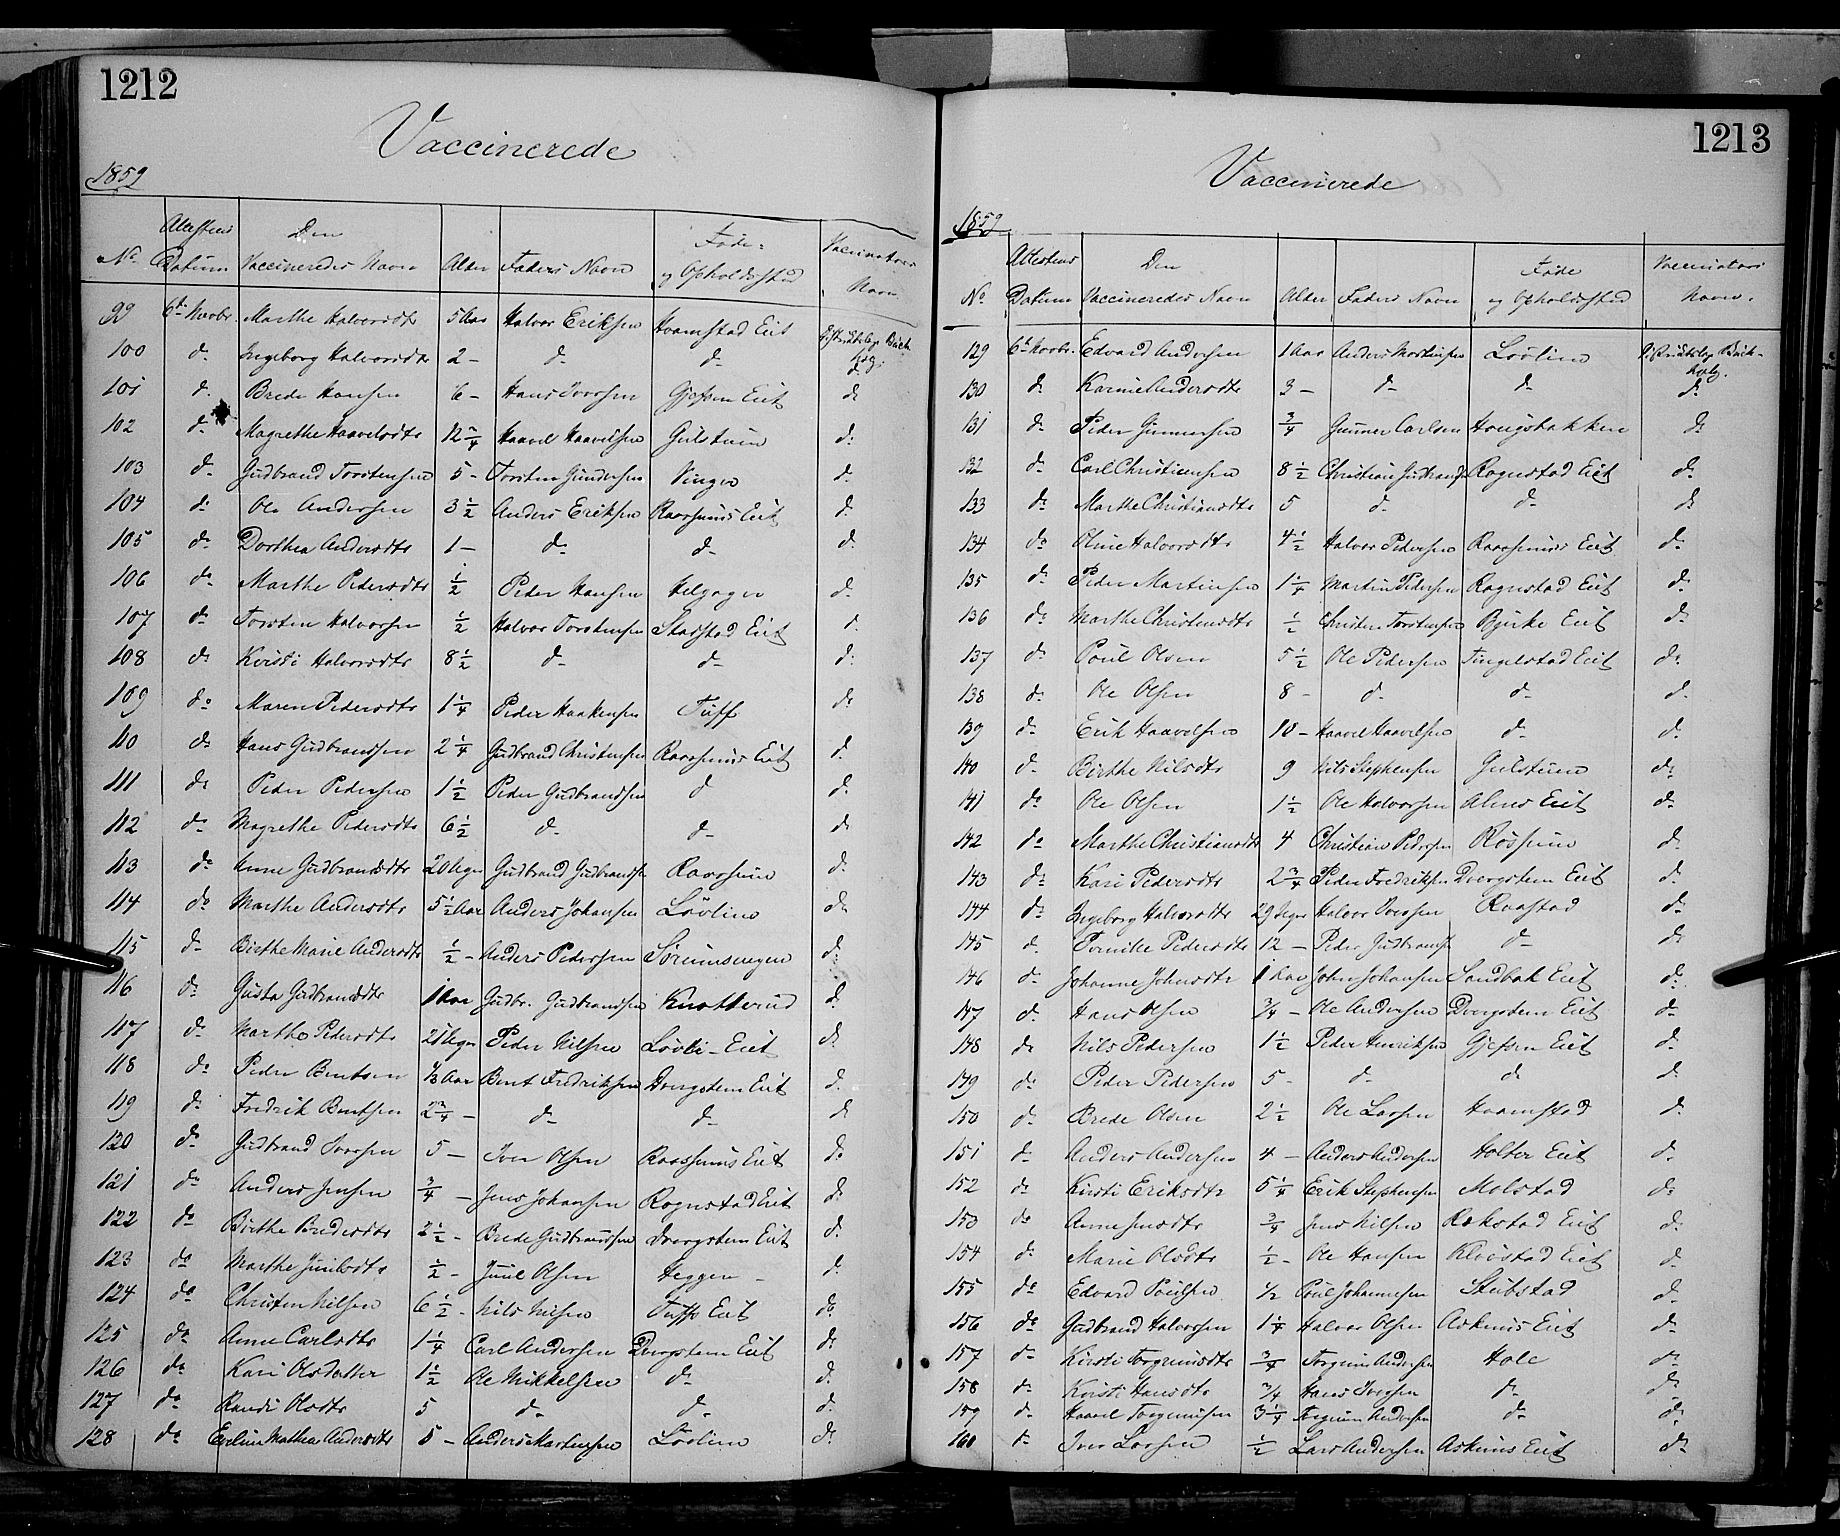 1212
Vaccinerede
1859
No Attestens Datum Den Vaccineredes Navn Alder Faders Navn Føde- og Opholdssted Vaccinators Navn
99 6te Novbr. Marthe Halvorsdtr 5 Aar Halvor Eriksen Hvamstad Eit Distriktslæge Buchholz
100 do Ingeborg Halvorsdtr 2 - do do do
101 do Brede Hansen 6 - Hans Iversen Gjefsen Eit do
102 do Magrethe Haavelsdtr 12 Haavel Haavelsen Gulstuen do
103 do Gudbrand Torstensen 5 - Torsten Gundersen Vinger do
104 do Ole Andersen 3 1/2 Anders Eriksen Raassums Eit do
105 do Dorthea Andersdtr 1 - do do do
106 do Marthe Pedersdtr 1/2 Peder Hansen Helgager do
107 do Torsten Halvorsen 1/2 Halvor Torstensen Stadstad Eit do
108 do Kirsti Halvorsdtr 8 1/2 do do do
109 do Maren Pedersdtr 1 1/4 Peder Haakensen Tuff do
110 do Hans Gudbrandsen 2 1/4 Gudbrand Christensen Raassums Eit do
111 do Peder Pedersen 1 1/2 Peder Gudbrandsen do do
112 do Magrethe Pedersdtr 6 1/2 do do do
113 do Anne Gudbrandsdtr 20 Uger Gudbrand Gudbrands. Raassum do
114 do Marthe Andersdtr 5 1/2 Aar Anders Johansen Løvlien do
115 do Birthe Marie Andersdtr 1/2 - Anders Pedersen Sørumsengen do
116 do Gusta Gudbrandsdtr 1 Aar Gudbr. Gudbrandsen Knatterud do
117 do Marthe Pedersdtr 21 Uger Peder Nilsen Løvli-Eit do
118 do Peder Bentsen 1/3 Aar Bent Fredriksen Dvergsten Eit do
119 do Fredrik Bentsen 2 3/4 - do do do
120 do Gudbrand Iversen 5 - Iver Olsen Raassums Eit do
121 do Anders Jensen 3/4 - Jens Johansen Rognstad Eit do
122 do Birthe Bredesdtr 2 1/2 - Brede Gudbrandsen Dvergsten Eit do
123 do Marthe Juulsdtr 1/2 - Juul Olsen Heggen - do
124 do Christen Nilsen 6 1/2 - Nils Nilsen Tuffs Eit do
125 do Anne Carlsdtr 1 1/4 Carl Andersen Dvergsten Eit do
126 do Kari Olsdatter 1 1/2 Ole Mikkelsen do do
127 do Randi Olsdtr 5 do do do
128 do Eveline Mathea Andersdtr 5 - Anders Martinsen Løvlien do
1213
Vaccinerede
1859
No Attestens Datum Den Vaccineredes Navn Alder Faders Navn Føde og Opholdssted Vaccinators Navn.
129 6te Novbr. Edvard Andersen 1 Aar Anders Martinsen Løvlien Distriktslæge Buchholz.
130 do Karine Andersdtr 3 - do do do
131 do Peder Gunnersen 3/4 Gunner Carlsen Hougsbakken do
132 do Carl Christiansen 8 1/2 Christian Gudbrands. Rognstad Eit do
133 do Marthe Christiansdtr 5 do do do
134 do Oline Halvorsdtr 4 1/2 Halvor Pedersen Raassums Eit do
135 do Peder Martinsen 1 1/4 Martin Pedersen Rognstad Eit do
136 do Marthe Christensdtr 1/2 Christen Torstensen Bjirke Eit do
137 do Poul Olsen 5 1/2 Ole Pedersen Tingelstad Eit do
138 do Ole Olsen 8 - do do do
139 do Erik Haavelsen 10 - Haavel Haavelsen do do
140 do Birthe Nilsdtr 9 Nils Stephensen Gulstuen do
141 do Ole Olsen 1 1/2 Ole Halvorsen Alms Eit do
142 do Marthe Christiansdtr 4 Christian Pedersen Røssum do
143 do Kari Pedersdtr 2 3/4 Peder Fredriksen Dvergsten Eit do
144 do Ingeborg Halvorsdtr 29 Uger Halvor Iversen Raastad do
145 do Pernille Pedersdtr 12 - Peder Gudbrands. do do
146 do Johanne Johnsdtr 1 Aar John Johansen Sandbak Eit do
147 do Hans Olsen 3/4 - Ole Andersen Dvergsten Eit do
148 do Nils Pedersen 1 1/2 Peder Henriksen Gjefsen Eit do
149 do Peder Pedersen 5 - do do do
150 do Brede Olsen 2 1/2 Ole Larsen Hvamstad do
151 do Anders Andersen 4 - Anders Andersen Holter Eit do
152 do Kirsti Eriksdtr 5 1/4 Erik Stephensen Molstad do
153 do Anne Jensdtr 3/4 Jens Nilsen Rakstad Eit do
154 do Marie Olsdtr 1/2 - Ole Hansen Kløvstad Eit do
155 do Edvard Poulsen 1/2 Poul Johannesen Stubstad do
156 do Gudbrand Halvorsen 1 1/4 Halvor Olsen Askims Eit do
157 do Kirsti Torgrimsdtr 3/4 Torgrim Andersen Hole do
158 do Kirsti Hansdtr 3/4 Hans Iversen do do
159 do Haavel Torgrimsen 3 1/4 Torgrim Andersen do do
160 do Iver Larsen 1/2 Lars Andersen Askims Eit do